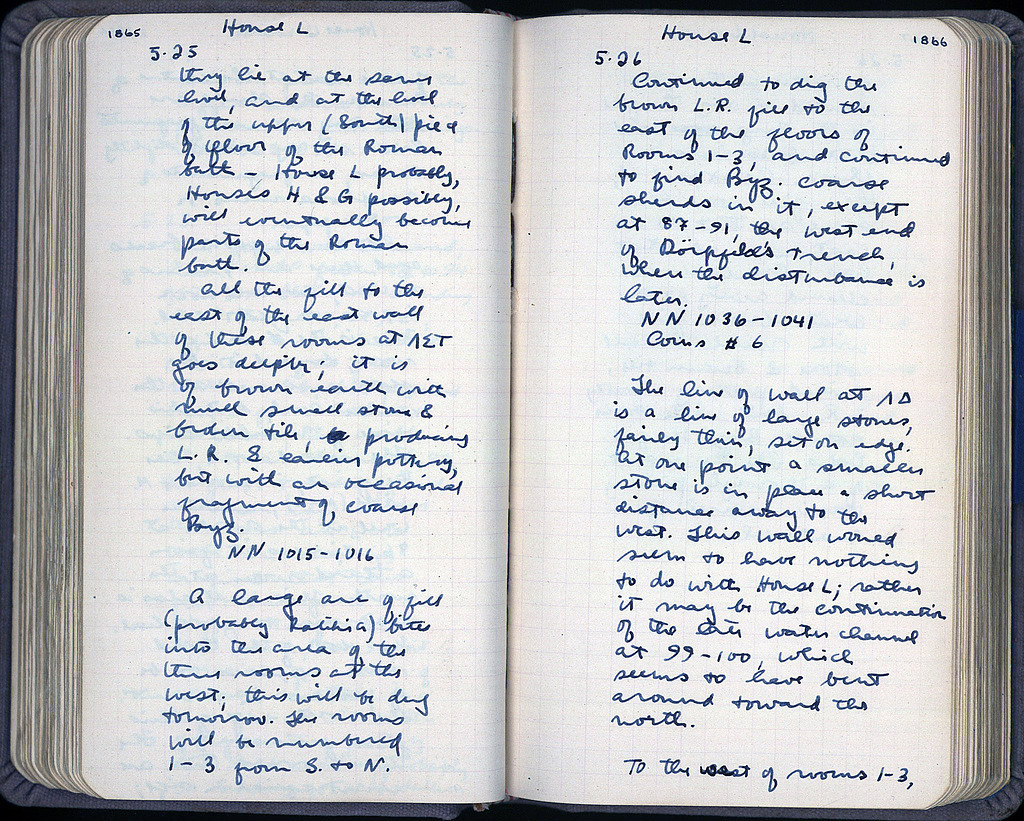 1865
House L
5.25
they lie at the same
level, and at the level
of the upper (South) piece
of floor of the Roman
bath – House L probably,
Houses H & G possibly,
will eventually become
parts of the Roman
bath.
All the fill to the
east of the east wall
of these rooms at ΛΣΤ
goes deeply; it is
of brown earth with
much small stone &
broken tile, producing
L.R. & earlier pottery,
but with an occasional
fragment of coarse
Byz.
NN 1015-1016
A large arc of fill
(probably Rakhia) bites
into the area of the
three rooms at the
west; this will be dug
tomorrow. The rooms
will be numbered
1-3 from S. to N.
House L
1866
5.26
Continued to dig the
brown L.R. fill to the
east of the floors of
Rooms 1-3, and continued
to find Byz. coarse
sherds in it, except
at 87-91, the west end
of Dörpfeld's trench,
where the disturbance is
later.
NN 1036-1041
Coins # 6
The line of wall at ΛΔ
is a line of large stones,
fairly thin, set on edge.
At one point a smaller
stone is in place a short
distance away to the
west. This wall would
seem to have nothing
to do with House L; rather
it may be the continuation
of the late water channel
at 99-100, which
seems to have bent
around toward the
north.
To the west of rooms 1-3,